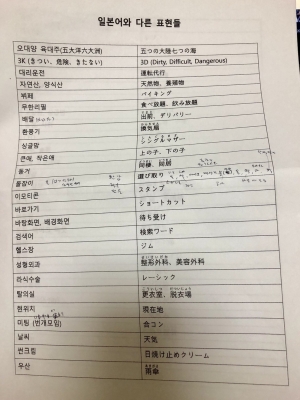 일본어와 다른 표현들
오대양 육대주(五大洋六大洲) 五つの大陸七つの海
3K (きつい、危険、きたない) 3D (Dirty, Difficult, Dangerous)
대리운전 運転代行
자연산, 양식산 天然物、養殖物
뷔페 バイキング
무한리필 食べ放題、飲み放題
배달 出前、デリバリー
환풍기 換気扇
싱글맘 シングルマザー
큰애, 작은애 上の子、下の子
동거 同棲、同居
選び取り
이모티콘 スタンプ
바로가기 ショートカット
바탕화면, 배경화면 待ち受け
검색어 検索ワード
헬스장 ジム
성형외과 整形外科、美容外科
라식수술 レーシック
탈의실 更衣室、脱衣場
현위치 現在地
미팅 (번개모임) 合コン
날씨 天気
썬크림 日焼け止めクリーム
우산 雨傘